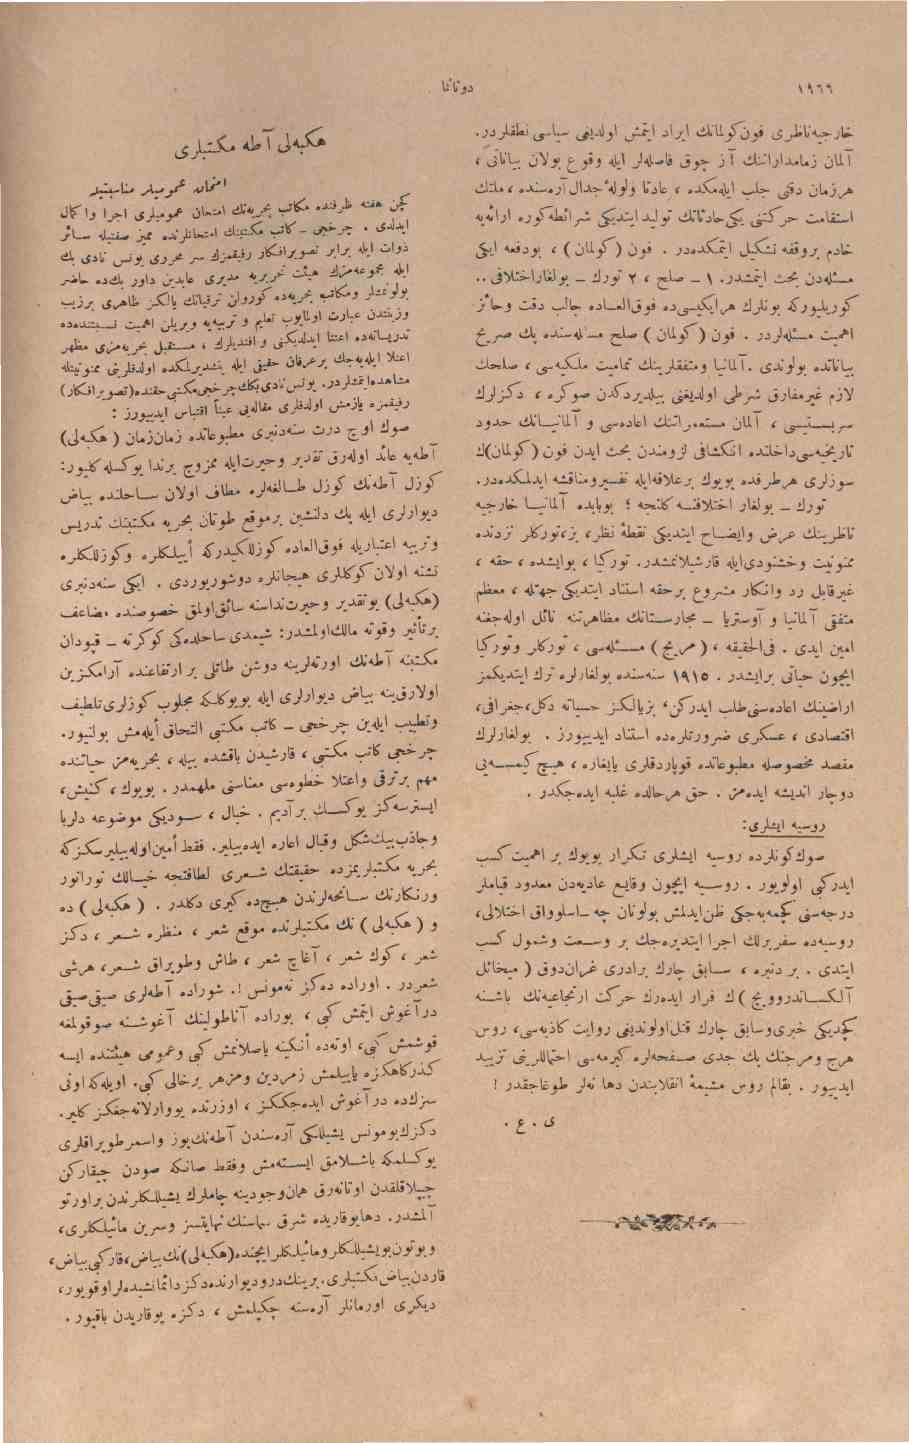 ١٩٦٦
دونانما
خارجیه ناظری فون کولمانك ایراد ایتمش اولدیغی سیاسی نطقلردر.
آلمان زمامدارانتك آز چوق فاصله‌لر ایله وقوع بولان بیاناتی ،
هر زمان دقتی جلب ایله‌مکده ، عادتا ولولهٔ جدال آره‌سنده ، ملتك
استقامت حرکتنی یکی حادثاتك تولید ایتدیکی شرائطه کوره ارائه‌یه
خادم بر وقفه تشکیل ایتمکده‌در. فون (کولمان) ، بودفعه ایکی
مسئله‌دن بحث ایتمشدر. ١ ـ صلح ، ٢ تورك ـ بولغار اختلافی..
کوریلیورکه بونلرك هر ایکیسی‌ده فوق‌العاده جالب دقت و حائز
اهمیت مسئله‌لردر. فون (کولمان) صلح مسئله‌سنده پك صریح
بیاناتده بولوندی. آلمانیا و متفقلرینك تمامیت ملکیه‌سی ، صلحك
لازم غیر مفارق شرطی اولدیغنی بیلدیردکدن صوکره ، دکزلرك
سربستیسی ، آلمان مستعمراتنك اعاده‌سی و آلمانیانك حدود
تاریخیه‌سی داخلنده انکشافی لزومندن بحث ایدن فون (کولمان)ك
سوزلری هر طرفده بویوك بر علاقه ایله تفسیر و مناقشه ایدلمکده‌در.
تورك ـ بولغار اختلافنه کلنجه ؛ بوبابده آلمانیا خارجیه
ناظرینك عرض وایضاح ایتدیکی نقطهٔ نظر ، بز ، تورکلر نزدنده
ممنونیت وخشنودی ایله قارشیلانمشدر. تورکیا ، بوایشده ، حقه ،
غیرقابل رد وانکار مشروع بر حقه استناد ایتدیکی جهتله ، معظم
متفقی آلمانیا و آوستریا ـ مجارستانك مظاهرتنه نائل اوله‌جغنه
امین ایدی. فی‌الحقیقه ، (مریج) مسئله‌سی ، تورکلر وتورکیا
ایچون حیاتی برایشدر. ١٩١٥ سنه‌سنده بولغارلره ترك ایتدیکمز
اراضینك اعاده‌سنی طلب ایدرکن ، بز یالکز حسیاته دکل ، جغرافی ،
اقتصادی ، عسکری ضرورتلره‌ده استناد ایدییورز. بولغارلرك
مقصد مخصوصله مطبوعاتده قوپاردقلری یایغاره ، هیچ کیمسه‌یی
دوچار اندیشه ایده‌مز. حق هر حالده غلبه ایده‌جکدر.
روسیه ایشلری :
صوك کونلرده روسیه ایشلری تکرار بویوك بر اهمیت کسب
ایدرکبی اولویور. روسیه ایچون وقایع عادیه‌دن معدود قیاملر
درجه‌سنی کچمه‌یه‌جکی ظن ایدلمش بولونان چه‌ـ اسلوواق اختلالی ،
روسیه‌ده سفربرلك اجرا ایتدیره‌جك بر وسعت وشمول کسب
ایتدی. بر دنبره ، سابق چارك برادری غران‌دوق (میخائل
آلکساندروویچ)ك فرار ایده‌رك حرکت ارتجاعیه‌نك باشنه
کچدیکی خبری وسابق چارك قتل اولوندیغی روایت کاذبه‌سی ، روس
هرج ومرجنك پك جدی صفحه‌لره کیرمه‌سی احتماللرینی تزیید
ایدییور. بقالم روس مشیمهٔ انقلابندن دها نه‌لر طوغاجقدر !
ی. ع.
هکبه‌لی آطه مکتبلری
امتحان عمومیلر مناسبتیله
کچن هفته ظرفنده مکاتب بحریه‌نك امتحان عمومیلری اجرا و اکال
ایدلدی. چرخجی ـ کاتب مکتبنك امتحانلرنده ممیز صفتیله سائر
ذوات ایله برابر تصویر افکار رفیقمزك سر محرری یونس نادی بك
ایله مجموعه‌مزك هیئت تحریریه مدیری عابدین داور بك‌ده حاضر
بولوندیلر ومکاتب بحریه‌ده کوروان ترقیاتك یالکز ظاهری بر زیب
وزینتدن عبارت اولمایوب تعلیم و تربیه‌یه ویریلن اهمیت نسبتنده‌ده
تدریساته‌ده اعتنا ایدلدیکنی و افندیلرك ، مستقبل بحریه‌مزی مظهر
اعتلا ایله‌یه‌جك بر عرفان حقیقی ایله یتشدیرلمکده اولدقلرینی ممنونیتله
مشاهده ایتمشلردر. یونس نادی بکك چرخجی مکتبی حقنده (تصویر افکار)
رفیقمزه یازمش اولدقلری مقاله‌یی عیناً اقتباس ایدییورز :
صوك اوچ درت سنه‌دنبری مطبوعاتده زمان زمان (هکبه‌لی)
آطه‌یه عائد اوله‌رق تقدیر وحیرت ایله ممزوج برندا یوکسله کلیور :
کوزل آطه‌نك کوزل طالغه‌لره مطاف اولان ساحلنده بیاض
دیوارلری ایله پك دلنشین بر موقع طوتان بحریه مکتبنك تدریس
وتربیه اعتباریله فوق‌العاده کوزللکیدرکه أییلکلره وکوزللکلره
تشنه اولان کوکللری هیجانلره دوشوریوردی. ایکی سنه‌دنبری
(هکبه‌لی) بو تقدیر وحیرت نداسنه سائق اولمق خصوصنده مضاعف
بر تأثیر وقوته مالك اولمشدر : شیمدی ساحلده‌کی کوکرته ـ قپودان
مکتبنه آطه‌نك اورته‌لرینه دوشن طاتلی بر ارتفاعنده آرامکزین
اولارق ینه بیاض دیوارلری ایله بویوکلکه مجلوب کوزلری تلطیف
وتطییب ایله‌ین چرخجی ـ کاتب مکتبی التحاق أیله‌مش بولنیور.
چرخجی کاتب مکتبی ، قارشیدن باقشده بیله ، بحریه‌مز حیاتنده
مهم بر ترقی واعتلا خطوه‌سی معناسنی ملهمدر. بویوك ، کنیش ،
ایسترسه‌کز یوکسك بر آدیم. خیال ، سودیکی موضوعه دلربا
وجاذب بیك شکل وقیال اعاره ایده‌بیلیر. فقط أمین اوله‌بیلیرسکز که
بحریه مکتبلریمزده حقیقتك شعری لطافتجه خیالك نورانور
ورنکارنك سانحه‌لرندن هیچ‌ده کیری دکلدر. (هکبه‌لی) ده
و (هکبه‌لی) نك مکتبلرنده موقع شعر ، منظره شعر ، دکز
شعر ، کوك شعر ، آغاج شعر ، طاش وطوپراق شعر ، هرشی
شعردر. اوراده ده‌کز نه‌مونس !. شوراده آطه‌لری صیقی صیقی
در آغوش ایتمش کبی ، بوراده آناطولینك آغوشنه صوقولمغه
قوشمش کبی ، اوته‌ده أنکینه یاصلانمش کبی وعمومی هیئتنده ایسه
کذرکاهکزه یاییلمش زمردین ومزهر برخالی کبی. اویله که اونی
سزك‌ده در آغوش ایده‌جککز ، اوزرنده یووارلانه‌جغکز کلیر.
دکزك بومونس یشیللکی آره‌سندن آطه‌نك بوز واسمر طوپراقلری
یوکسلمکه باشلامق ایسته‌مش وفقط صانکه صودن چیقارکن
چیپلاقلقدن اوتانه‌رق همان وجودینه چاملرك یشیللکلرندن براورتو
آلمشدر. دها یوقاریده شرق سماسنك نهایتسز وسرین مائیلکلری ،
وبوتون بو یشیللکلر ومائیلکلر ایچنده (هکبه‌لی)نك بیاض ، قار کبی بیاض ،
قاردن بیاض مکتبلری. برینك درو دیوارنده دکز دائما نشیده‌لر اوقویور ،
دیکری اورمانلر آره‌سنه چکیلمش ، دکزه یوقاریدن باقیور.